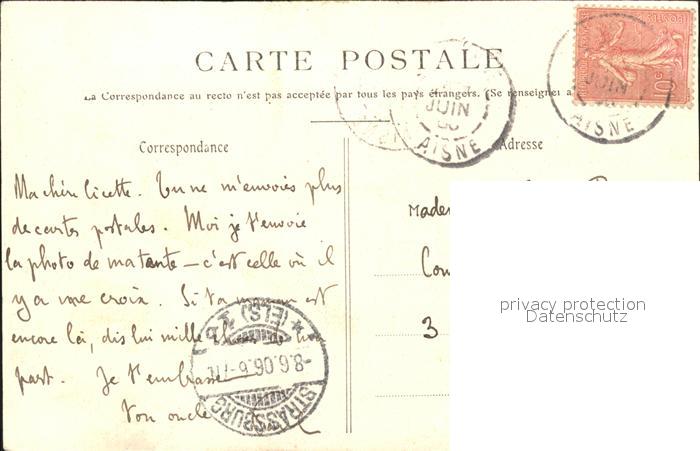 CARTE POSTALE
La Correspondance au recto n'est pas acceptée par tous les pays étrangers. (Se renseigner a
JUIN
AISNE
POSTES
10c
JUIN
AISNE
Correspondance
Ma chère Licette. Tu ne m'envoies plus
de cartes postales. Moi je t'envoie
la photo de ma tante – c'est celle où il
y a une croix. Si ta maman est
encore là, dis lui mille de
part. Je t'embrasse
Ton oncle
STRASSBURG
(ELS) 1
-8.6.06.6-7N.
Adresse
Made
Con
3
privacy protection
Datenschutz